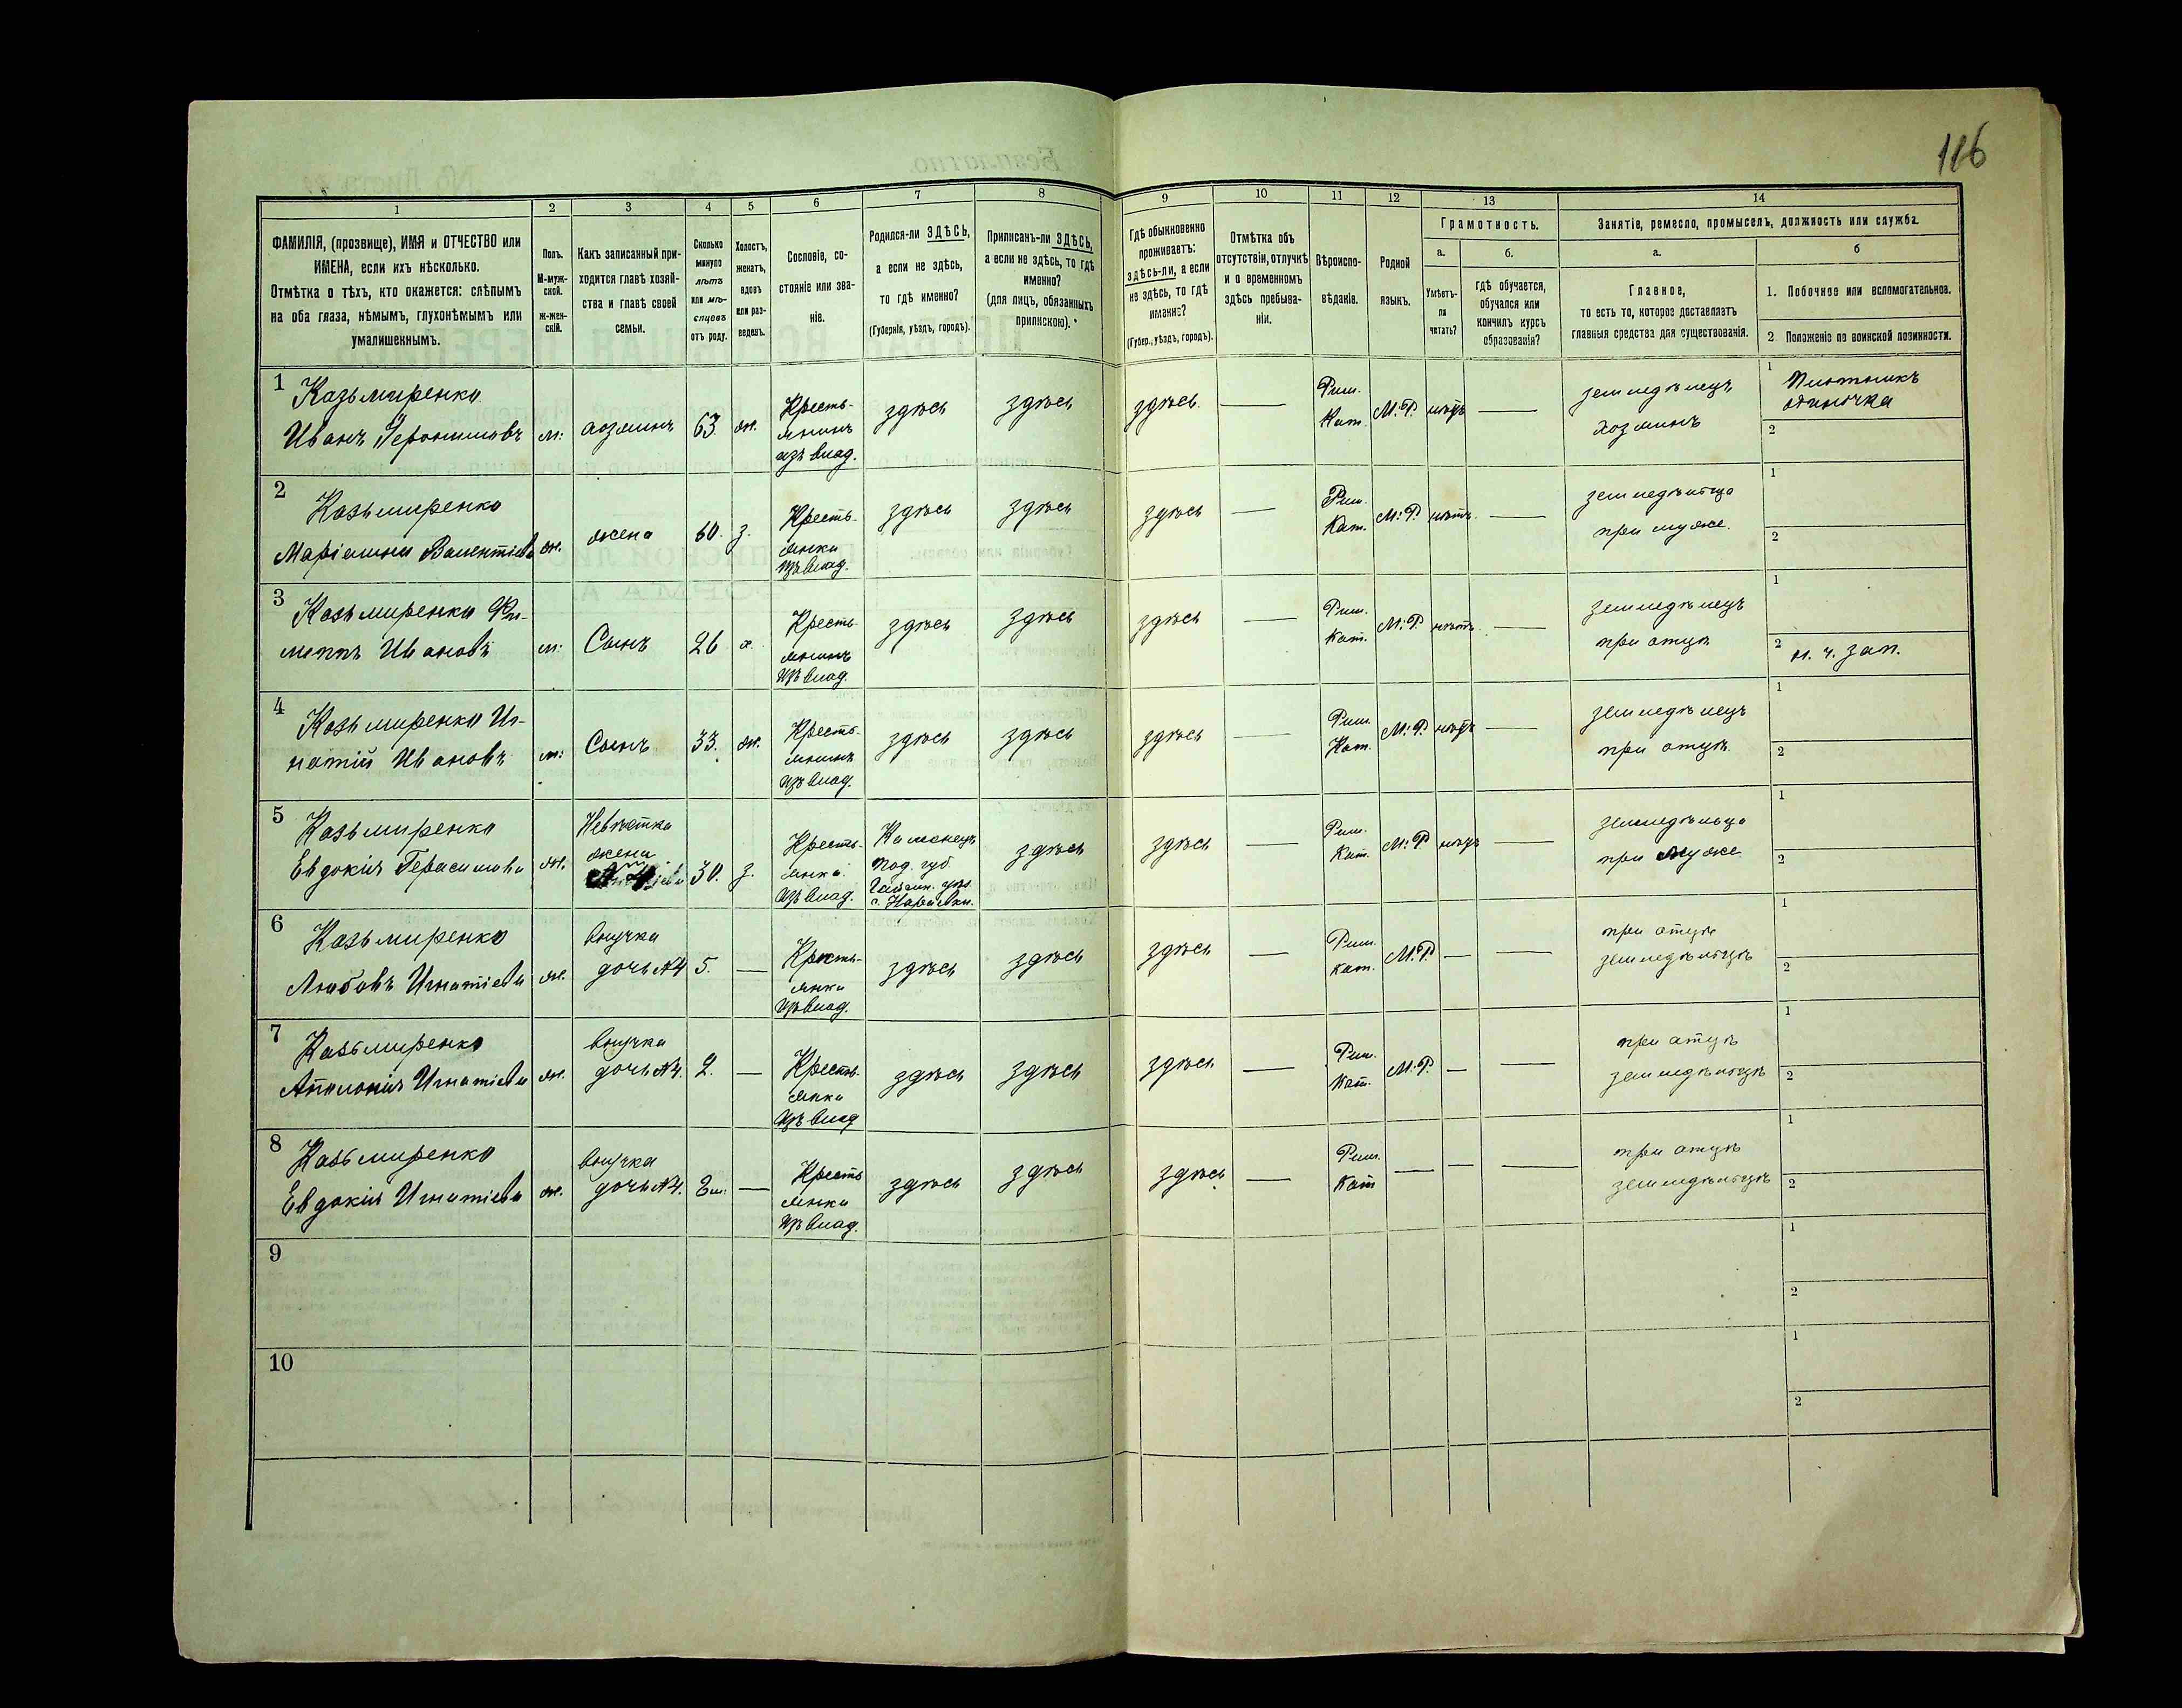 116
1
2
3
4
5
6
7
8
9
10
11
12
13
14
ФАМИЛІЯ, (прозвище), ИМЯ и ОТЧЕСТВО или
ИМЕНА, если ихъ нѣсколько.
Отмѣтка о тѣхъ, кто окажется: слѣпымъ
на оба глаза, нѣмымъ, глухонѣмымъ или
умалишеннымъ.
Полъ.
М-муж-
ской.
ж-жен-
скій.
Какъ записанный при-
ходится главѣ хозяй-
ства и главѣ своей
семьи.
Сколько
минуло
лѣтъ
или мѣ-
сяцевъ
отъ роду.
Холостъ,
женатъ,
вдовъ
или раз-
веденъ.
Сословіе, со-
стояніе или зва-
ніе.
Родился-ли ЗДѢСЬ,
а если не здѣсь,
то гдѣ именно?
(Губернія, уѣздъ, городъ).
Приписанъ-ли ЗДѢСЬ,
а если не здѣсь, то гдѣ
именно?
(для лицъ, обязанныхъ
припискою).
Гдѣ обыкновенно
проживаетъ:
здѣсь-ли, а если
не здѣсь, то гдѣ
именно?
(Губер., уѣздъ, городъ).
Отмѣтка объ
отсутствіи, отлучкѣ
и о временномъ
здѣсь пребыва-
ніи.
Вѣроиспо-
вѣданіе.
Родной
языкъ.
Грамотность.
а.
Умѣетъ-
ли
читать?
б.
гдѣ обучается,
обучался или
кончилъ курсъ
образованія?
Занятіе, ремесло, промыселъ, должность или служба.
а.
Главное,
то есть то, которое доставляетъ
главныя средства для существованія.
б
1. Побочное или вспомогательное.
2. Положеніе по воинской повинности.
1
Казьмиренко
Иванъ Іеронимовъ
м:
хозяинъ
63.
ж.
Кресть-
янинъ
изъ влад.
здѣсь
здѣсь
здѣсь.
Рим.
Кат.
М: Р.
нѣтъ
земледѣлецъ
хозяинъ
1
Плотникъ
одиночка
2
2
Казьмиренко
Маріанна Валентіева
ж.
жена
60.
з.
Кресть-
янка
изъ влад.
здѣсь
здѣсь
здѣсь
Рим.
Кат.
М: Р.
нѣтъ.
земледѣльца
при мужѣ.
1
2
3
Казьмиренко Фи-
липпъ Ивановъ
м:
Сынъ
26
х
Кресть-
янинъ
изъ влад.
здѣсь
здѣсь
здѣсь
Рим.
Кат.
М: Р.
нѣтъ
земледѣлецъ
при отцѣ
1
2
н. ч. зап.
4
Казьмиренко Иг-
натій Ивановъ
м:
Сынъ
33.
ж.
Кресть-
янинъ
изъ влад.
здѣсь
здѣсь
здѣсь
Рим.
Кат.
М: Р.
нѣтъ
земледѣлецъ
при отцѣ.
1
2
5
Казьмиренко
Евдокія Герасимова
ж.
Невѣстка
жена
№ 4
30.
з.
Кресть-
янка
изъ влад.
Каменецъ
Под. губ
Гайсин. уѣз.
с. Нараевки.
здѣсь
здѣсь
Рим.
Кат.
М: Р
нѣтъ
земледѣльца
при мужѣ
1
2
6
Казьмиренко
Любовъ Игнатіева
ж.
внучка
дочь №4
5.
Кресть-
янка
изъ влад.
здѣсь
здѣсь
здѣсь
Рим.
Кат.
М.Р.
при отцѣ
земледѣльцѣ
1
2
7
Казьмиренко
Аполонія Игнатіева
ж.
внучка
дочь №4.
2.
Кресть-
янка
изъ влад
здѣсь
здѣсь
здѣсь
Рим.
Кат.
М.Р.
при отцѣ
земледѣльцѣ
1
2
8
Казьмиренко
Евдокія Игнатіева
ж.
внучка
дочь №4.
Кресть
янка
изъ влад.
здѣсь
здѣсь
здѣсь
Рим.
Кат
при отцѣ
земледѣльцѣ
1
2
9
1
2
10
1
2